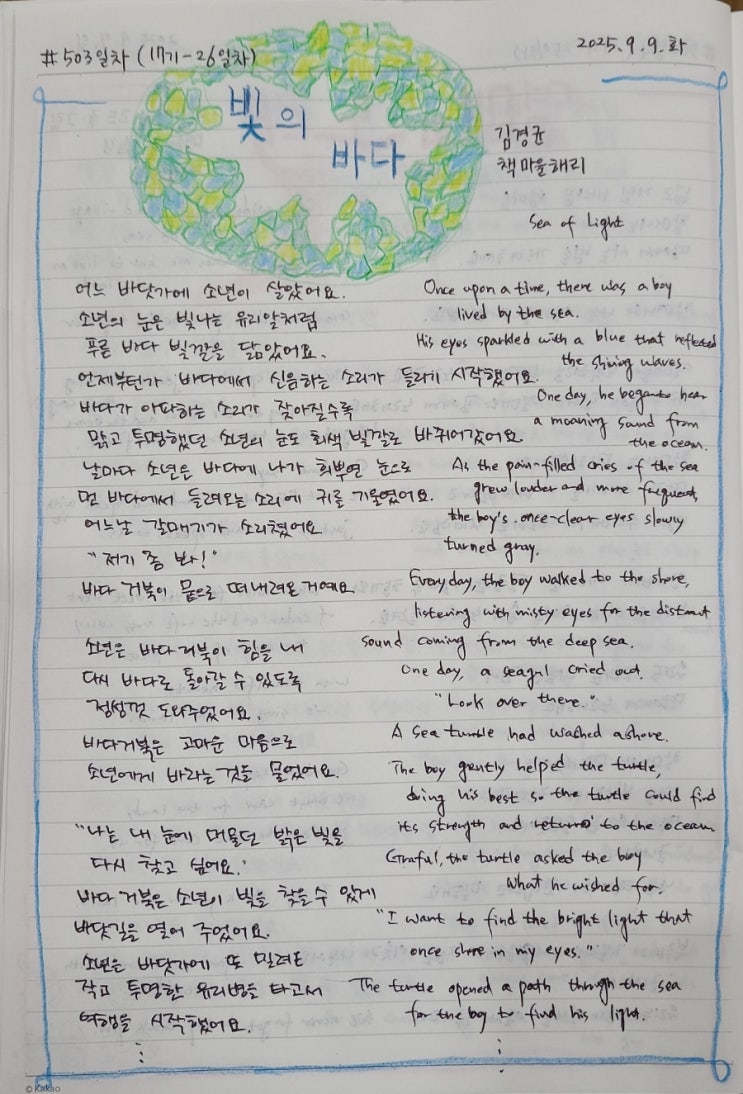 #503일차 (17기-26일차)
2025.9.9.화
빛의
바다
김경균
책마을해리
Sea of Light
어느 바닷가에 소년이 살았어요.
소년의 눈은 빛나는 유리알처럼
푸른 바다 빛깔을 닮았어요.
언제부턴가 바다에서 신음하는 소리가 들리기 시작했어요.
바다가 아파하는 소리가 잦아질수록
맑고 투명했던 소년의 눈도 회색 빛깔로 바뀌어갔어요
날마다 소년은 바다에 나가 희뿌연 눈으로
먼 바다에서 들려오는 소리에 귀를 기울였어요.
어느날 갈매기가 소리쳤어요
"저기 좀 봐!"
바다 거북이 뭍으로 떠내려온 거예요
소년은 바다거북이 힘을 내
다시 바다로 돌아갈 수 있도록
정성껏 도와주었어요.
바다거북은 고마운 마음으로
소년에게 바라는 것을 물었어요.
"나는 내 눈에 머물던 밝은 빛을
다시 찾고 싶어요."
바다 거북은 소년이 빛을 찾을 수 있게
바닷길을 열어 주었어요.
소년은 바닷가에 또 밀려온
작고 투명한 유리병을 타고서
여행을 시작했어요.
Once upon a time, there was a boy
lived by the sea.
His eyes sparkled with a blue that reflected
the shining waves.
One day, he began to hear
a moaning sound from
the ocean.
As the pain-filled cries of the sea
grew louder and more frequent,
the boy's once-clear eyes slowly
turned gray.
Everyday, the boy walked to the shore,
listening with misty eyes for the distant
sound coming from the deep sea.
One day, a seagul cried out.
"Look over there."
A sea turtle had washed ashore.
The boy gently helped the turtle,
doing his best so the turtle could find
its strength and return to the ocean
Grateful, the turtle asked the boy
what he wished for.
"I want to find the bright light that
once shore in my eyes."
The turtle opened a path through the sea
for the boy to find his light.
© Kakao